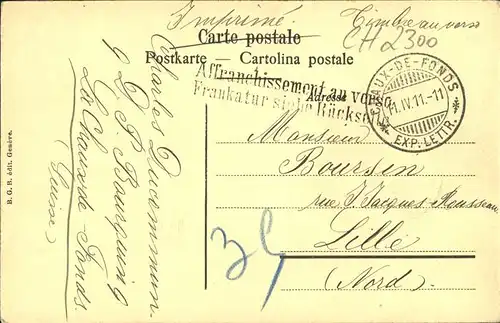 Imprimé.
Timbre au verso
CH 2300
Carte postale
Postkarte — Cartolina postale
Affranchissement au verso
Frankatur siehe Rückseite
Adresse
CHAUX-DE-FONDS
11.IV.11.-11
EXP. LETTR.
Monsieur
Boursin
rue J. Jacques Rousseau
Lille
(Nord)
Charles Ducommun.
P. Bourquin 9
La Chaux de Fonds.
(Suisse)
B. G. R. édit. Genève.